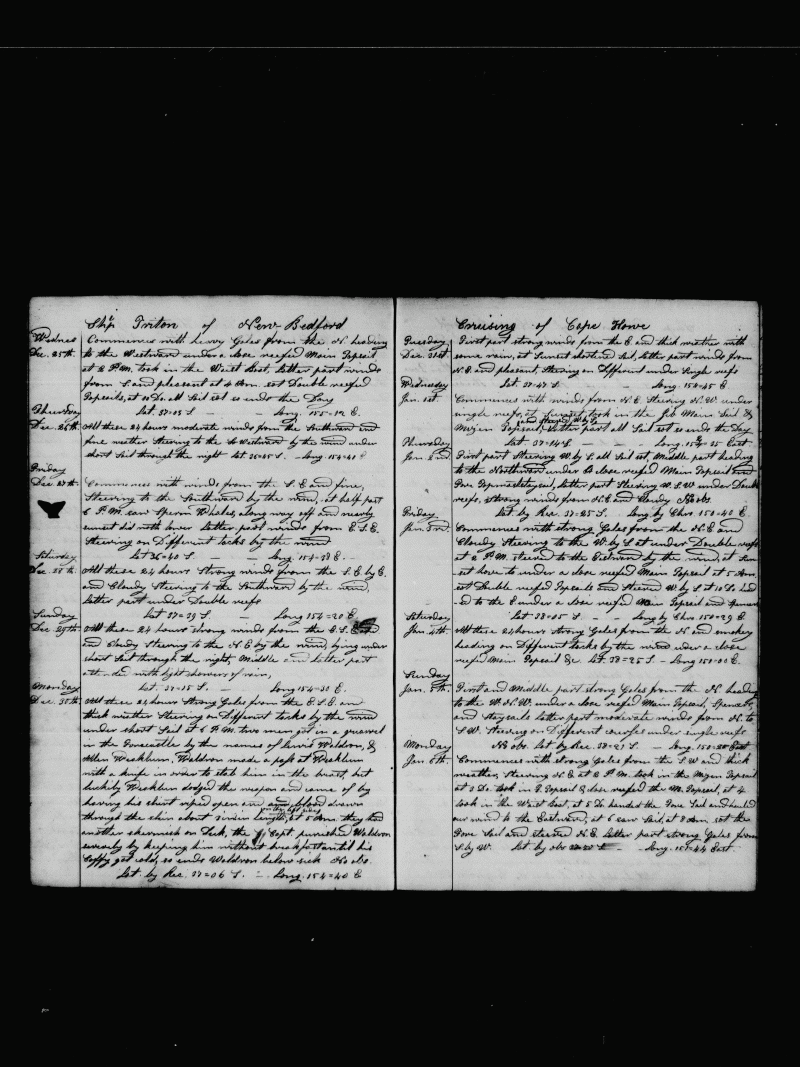 Ship Triton of New Bedford
Wednes Commences with heavy Gales from the N. heading
Dec. 25th to the Westward under a close reefed Main Topsail
at 2 P.M. took in the Waist Boat, latter part winds
from S. and pleasant at 4 Am. set Double reefed
Topsails, at 10 Do all Sail set so ends the Day
Thursday Lat. 37=05 S. — — Long. 155=12 E.
Dec. 26th All these 24 hours moderate winds from the Southward and
fine weather Steering to the Westward by the wind under
short Sail through the night Lat 36=45 S. — Long. 154=41 E
Friday
Dec. 27th Commences with winds from the S. E and fine,
Steering to the Southward by the wind, at half past
6 P.M. saw Sperm Whales, along way off and nearly
sunset did not lower Latter part winds from E.S.E.
Steering on Different tacks by the wind
Saturday Lat 36=40 S. — — Long 154=38 E.
Dec. 28th All these 24 hours Strong winds from the S.E. by E.
and Cloudy Steering to the Southward by the wind,
Latter part under Double reefs
Sunday Lat 37=29 S. — Long 154=20 E.
Dec 29th All these 24 hours strong winds from the E.S.E. and
and Cloudy Steering to the N. E by the wind, lying under
short Sail through the night, Middle and latter part
with light showers of rain,
Monday Lat. 37=05 S. — Long 154=30 E.
Dec. 30th All these 24 hours Strong Gales from the E.S.E. an
thick weather Steering on Different tacks by the wind
under short Sail at 6 P.M. two men got in a quarrel
in the Forecastle by the names of Lewis Waldron, &
Allen Washburn, Waldron made a pass at Washburn
with a knife in order to stab him in the breast, but
luckily Washburn dodged the weapon and came of by
having his shirt riped open and blood drawn
on the left side
through the skin about 3 in length, at 5 Am. they had
another skermish on Deck, the Capt punished Waldron
severely by keeping him without breakfast until his
Coffy got cold, so ends Waldron below sick No obs
Lat. by Rec. 37=06 S. — Long. 154=40 E
Cruising of Cape Howe
Tuesday First part strong winds from the E and thick weather with
Dec. 31st some rain, at Sunset shortend Sail, latter part winds from
N.E. and pleasant Steering on Different under Single reefs
Wednesday Lat. 37=47 S. — Long. 154=45 E.
Jan. 1st. Commences with winds from N.E. Steering N.W. under
single reefs, at sunset took in the Jib Main Sail &
and Steered W by S
Mizen Topsail, latter part all Sail set so ends the Day
Thursday Lat 37=14 S. — — Long. 15=25 East
Jan. 2nd First part Steering W. by S. all Sail set, Middle part heading
to the Northward under a close reefed Main Topsail and
Fore Topmaststaysail, latter part Steering W.S.W under Double
reefs, strong winds from N.E and Cloudy No obs.
Friday Lat by Rec. 37=25 S. Long by Chro. 150=40 E.
Jan. 3rd. Commences with strong Gales from the N. E and
Cloudy Steering to the W. by S at under Double reefs
at 2 P.M. steered to the Eastward by the wind, at Sun
set hove to under a close reefed Main Topsail at 5 Am.
set Double reefed Topsails and Steered W by S at 10 Do. had
-ed to the E under a close reefed Main Topsail and Spencer
Saturday Lat 38=05 S. — Long by Chro. 150=29 E.
Jan. 4th. All these 24 hours Strong Gales from the N. and smokey
heading on Different tacks by the wind under a close
reefed Main Topsail &c. Lat. 38=25 S — Long 150=00 E.
Sunday
Jan. 5th. First and Middle part strong Gales from the N. heading
to the W. N.W. under a close reefed Main Topsail, Spencers,
and Staysails latter part moderate winds from N. to
S.W. Steering on Different courses under single reefs
Monday No obs. Lat. by Rec. 38=21 S. — Long. 150=25 East
Jan 6th. Commences with strong Gales from the S.W and thick
weather, Steering N.E at 2 P.M. took in the Mizen Topsail
at 3 Do. took in F. Topsail & close reefed the M. Topsail, at 4
took in the Waist Boat, at 5 Do handed the Fore Sail and hauled
our wind to the Eastward, at 6 saw Sail, at 8 Am. set the
Fore Sail and steered N.E. latter part strong Gales from
S. by W. Lat by obs — Long. 151=44 East